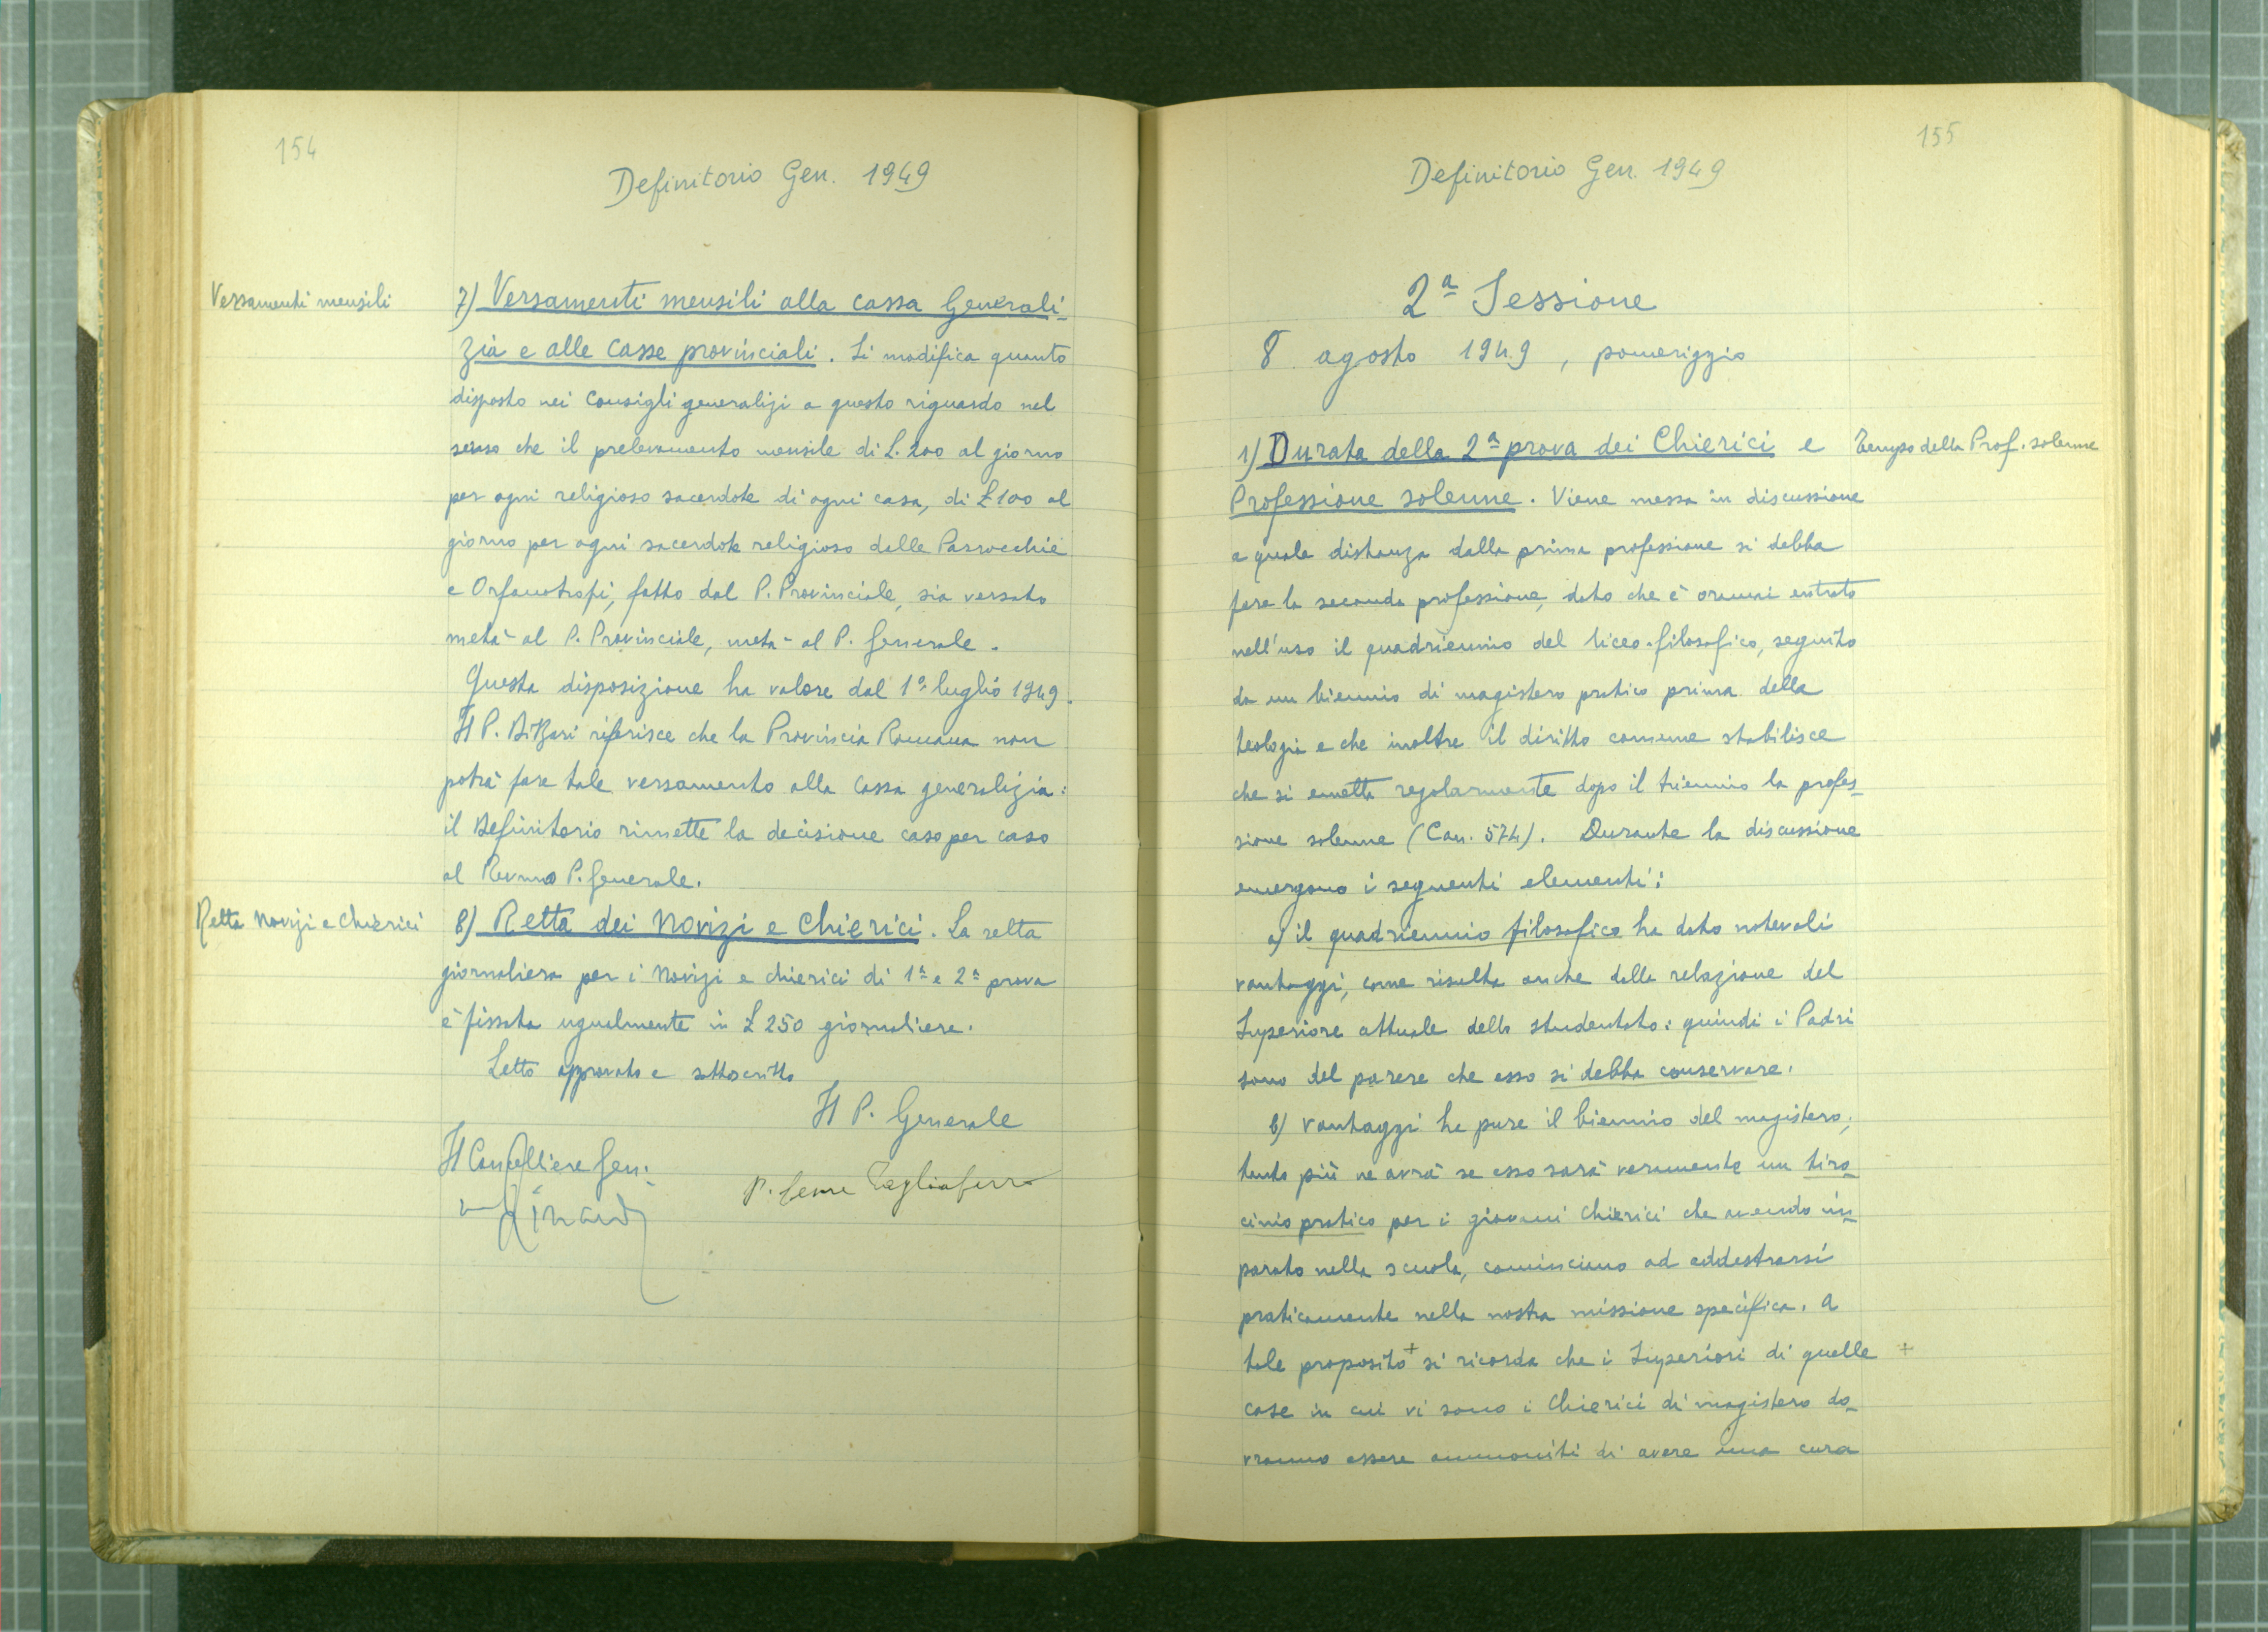 154
Definitorio Gen. 1949
Versamenti mensili
7) Versamenti mensili alla cassa Generali-
zia e alle casse provinciali. Si modifica quanto
disposto nei Consigli generalizi a questo riguardo nel
senso che il prelevamento mensile di L. 200 al giorno
per ogni religioso sacerdote di ogni casa, di £ 100 al
giorno per ogni sacerdote religioso delle Parrocchie
e Orfanotrofi, fatto dal P. Provinciale, sia versato
metà al P. Provinciale, metà al P. Generale.
Questa disposizione ha valore dal 1° luglio 1949.
Il P. riferisce che la Provincia Romana non
potrà fare tale versamento alla cassa generalizia:
il Definitorio rimette la decisione caso per caso
al Revmo P. Generale.
Retta Novizi e Chierici
8) Retta dei Novizi e Chierici. La retta
giornaliera per i Novizi e chierici di 1ª e 2ª prova
è fissata ugualmente in £ 250 giornaliere.
Letto approvato e sottoscritto
Il P. Generale
Il Cancelliere Gen.
P. Cesare Tagliaferro
155
Definitorio Gen. 1949
2ª Sessione
8 agosto 1949, pomeriggio
1) Durata della 2ª prova dei Chierici e
Tempo della Prof. solenne
Professione solenne. Viene messa in discussione
a quale distanza dalla prima professione si debba
fare la seconda professione, dato che è oramai entrato
nell'uso il quadriennio del liceo-filosofico, seguito
da un biennio di magistero pratico prima della
teologia e che inoltre il diritto comune stabilisce
che si emetta regolarmente dopo il triennio la profes-
sione solenne (Can. 574). Durante la discussione
emergono i seguenti elementi:
a) il quadriennio filosofico ha dato notevoli
vantaggi, come risulta anche dalla relazione del
Superiore attuale dello studentato: quindi i Padri
sono del parere che esso si debba conservare.
b) Vantaggi ha pure il biennio del magistero,
tanto più ne avrà se esso sarà veramente un tiro-
cinio pratico per i giovani Chierici che avendo im-
parato nella scuola, cominciano ad addestrarsi
praticamente nella nostra missione specifica. A
tale proposito + si ricorda che i Superiori di quelle +
case in cui vi sono i Chierici di magistero do-
vranno essere ammoniti di avere una cura